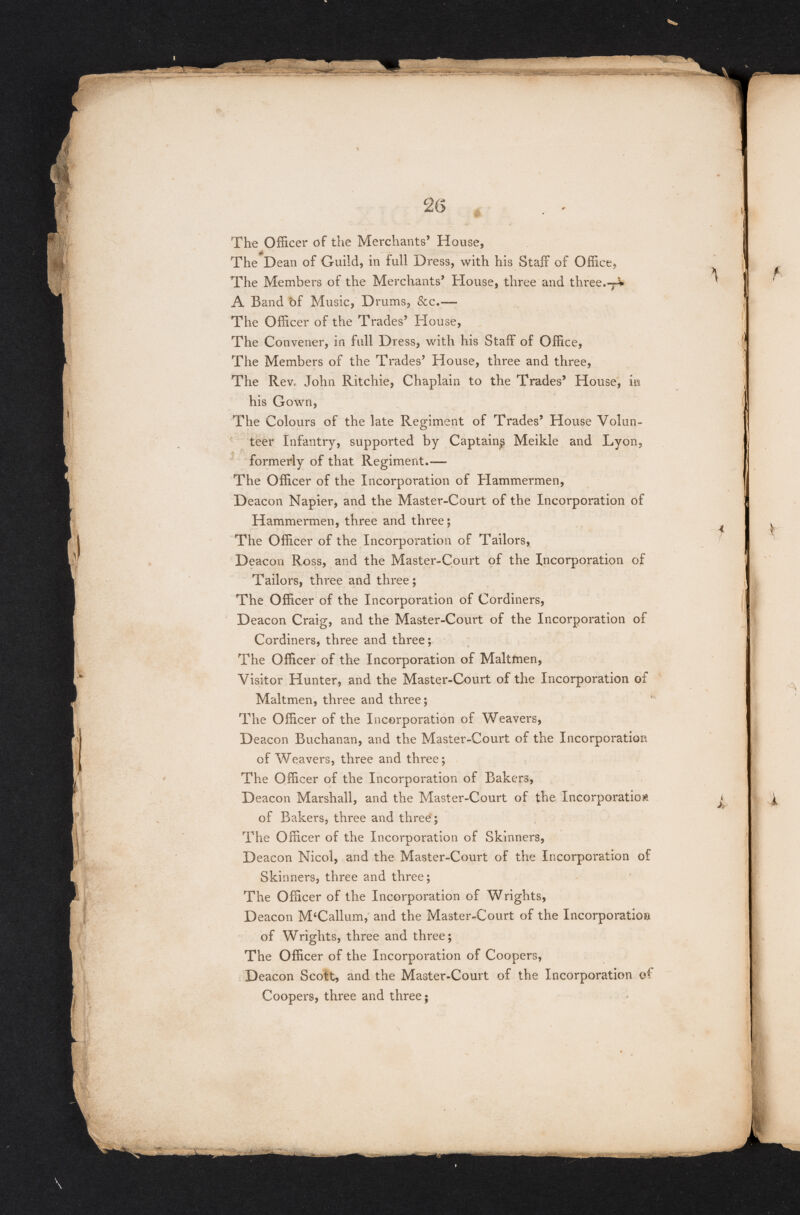 26
The Officer of the Merchants’ House,
The Dean of Guild, in full Dress, with his Staff of Office,
The Members of the Merchants’ House, three and three.—
A Band of Music, Drums, &c.—
The Officer of the Trades’ House,
The Convener, in full Dress, with his Staff of Office,
The Members of the Trades’ House, three and three,
The Rev. John Ritchie, Chaplain to the Trades’ House, in
his Gown,
The Colours of the late Regiment of Trades’ House Volun-
teer Infantry, supported by Captains Meikle and Lyon,
formerly of that Regiment.—
The Officer of the Incorporation of Hammermen,
Deacon Napier, and the Master-Court of the Incorporation of
Hammermen, three and three;
The Officer of the Incorporation of Tailors,
Deacon Ross, and the Master-Court of the Incorporation of
Tailors, three and three;
The Officer of the Incorporation of Cordiners,
Deacon Craig, and the Master-Court of the Incorporation of
Cordiners, three and three;
The Officer of the Incorporation of Maltmen,
Visitor Hunter, and the Master-Court of the Incorporation of
Maltmen, three and three;
The Officer of the Incorporation of Weavers,
Deacon Buchanan, and the Master-Court of the Incorporation
of Weavers, three and three;
The Officer of the Incorporation of Bakers,
Deacon Marshall, and the Master-Court of the Incorporation
of Bakers, three and three;
The Officer of the Incorporation of Skinners,
Deacon Nicol, and the Master-Court of the Incorporation of
Skinners, three and three;
The Officer of the Incorporation of Wrights,
Deacon M‘Callum, and the Master-Court of the Incorporation
of Wrights, three and three;
The Officer of the Incorporation of Coopers,
Deacon Scott, and the Master-Court of the Incorporation of
Coopers, three and three;